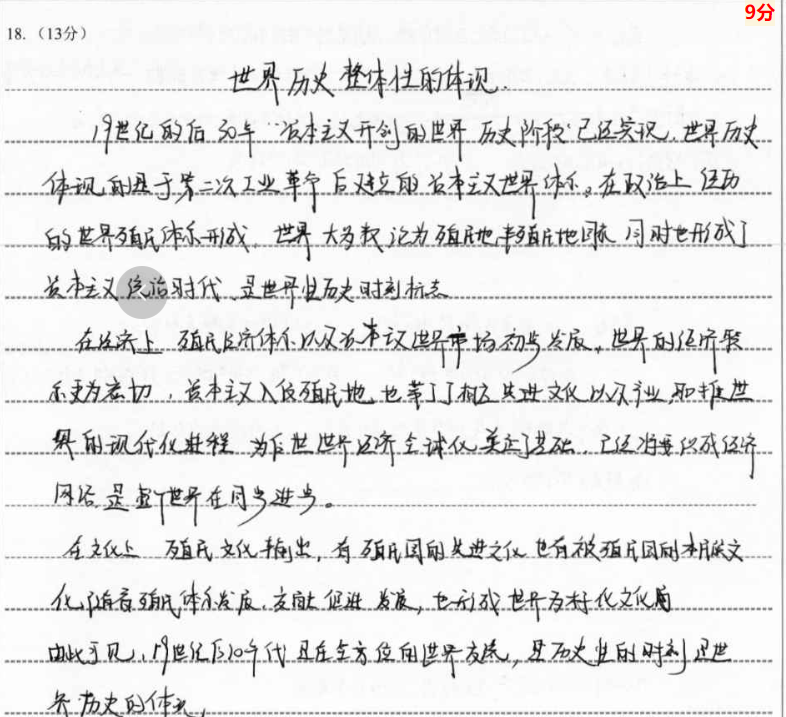 9分
18.（13分）
世界历史整体性的体现.
19世纪的后30年"资本主义开创的世界历史阶段"已经实现,世界历史
体现的是于第二次工业革命后建立的资本主义世界体系。在政治上
的世界殖民体系形成,世界大多数沦为殖民地半殖民地国家,同时也形成了
资本主义统治时代,是世界史历史时刻标志
在经济上 殖民经济体系以及资本主义世界市场初步发展,世界的经济联
系更为密切,资本主义入侵殖民地,也带了了相应先进文化以及产业,
界的现代化进程 为后世世界经济全球化奠定了基础,已经将要织成经济
网络是整个世界在同步进步。
在文化上 殖民文化输出,有殖民国的先进文化也有被殖民国的本民族文
化,随着殖民体系发展,交融促进发展,也形成世界多样化文化局
由此可见,19世纪后30年代是在全方位的世界交流,是历史性的时刻是世
界历史的体现,